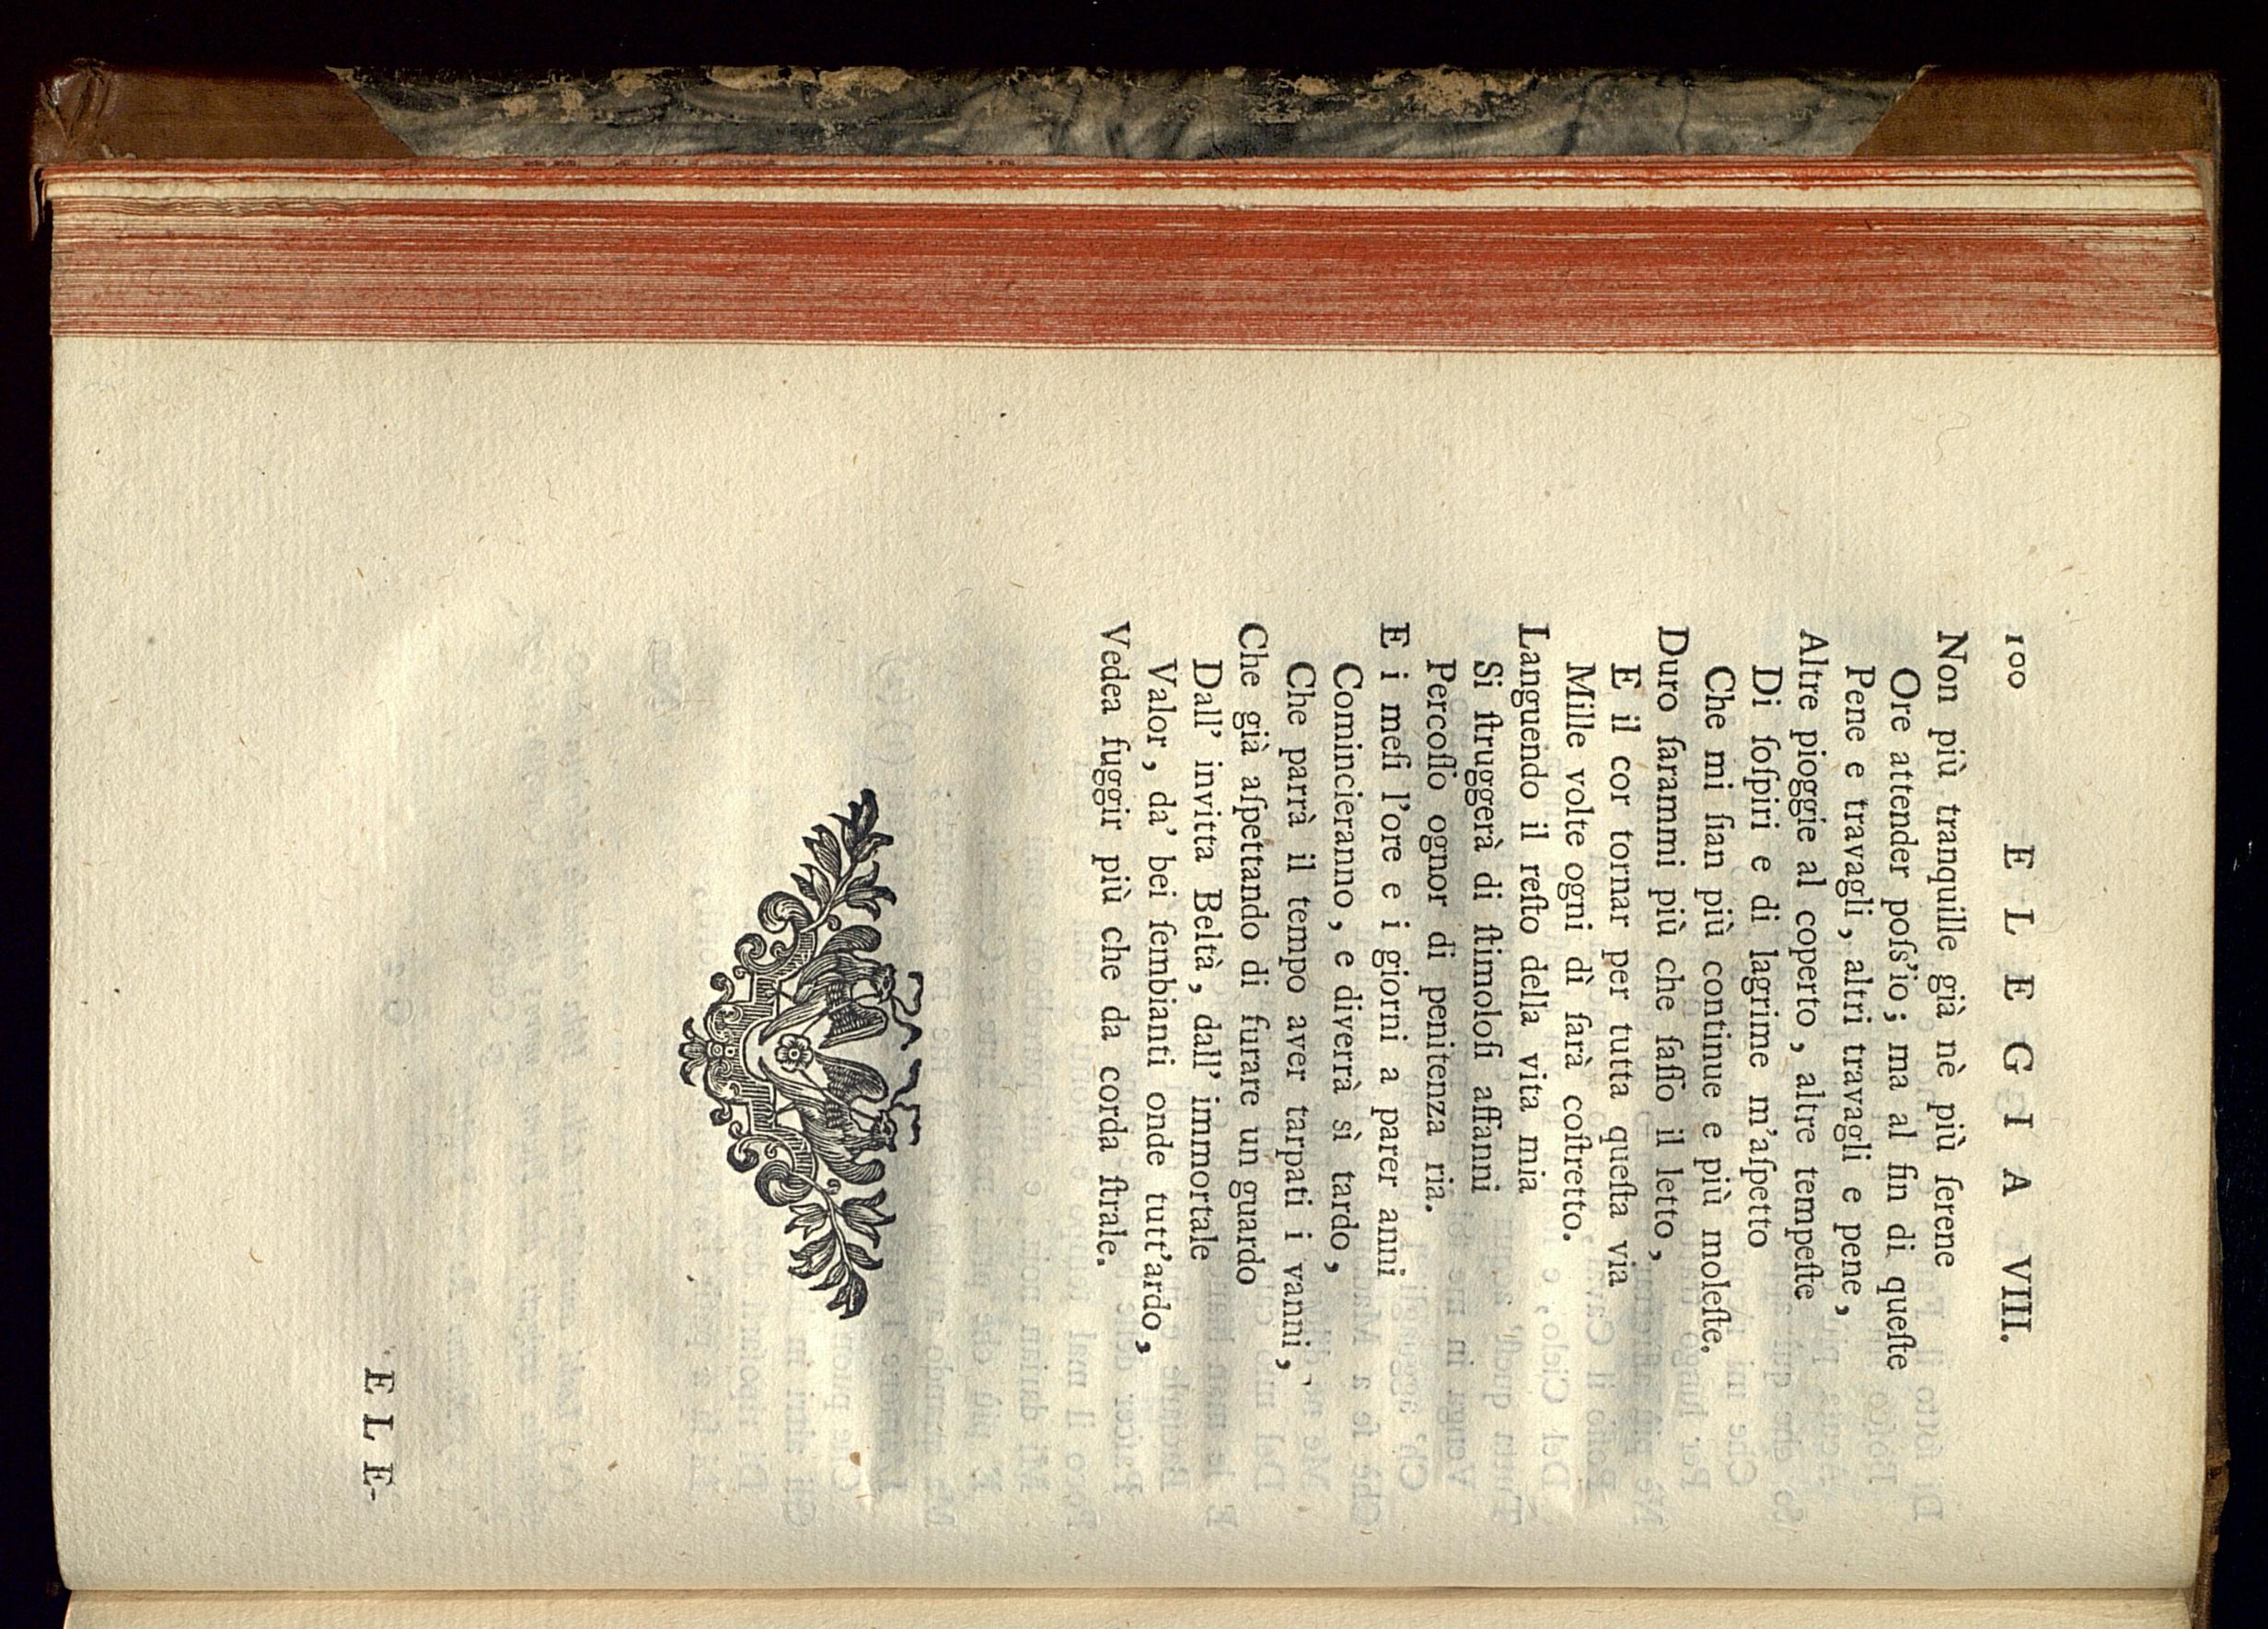 100 ELEGIA VIII.
Non più tranquille già nè più ſerene
Ore attender poſs'io; ma al fin di queſte
Pene e travagli, altri travagli e pene,
Altre pioggie al coperto, altre tempeſte
Di ſoſpiri e di lagrime m'aſpetto
Che mi ſian più continue e più moleſte.
Duro ſarammi più che ſaſſo il letto,
E il cor tornar per tutta queſta via
Mille volte ogni dì ſarà coſtretto.
Languendo il reſto della vita mia
Si ſtruggerà di ſtimoloſi affanni
Percoſſo ognor di penitenza ria.
E i meſi l'ore e i giorni a parer anni
Comincieranno, e diverrà sì tardo,
Che parrà il tempo aver tarpati i vanni,
Che già aſpettando di furare un guardo
Dall' invitta Beltà, dall' immortale
Valor, da' bei ſembianti onde tutt'ardo,
Vedea fuggir più che da corda ſtrale.
ELE-